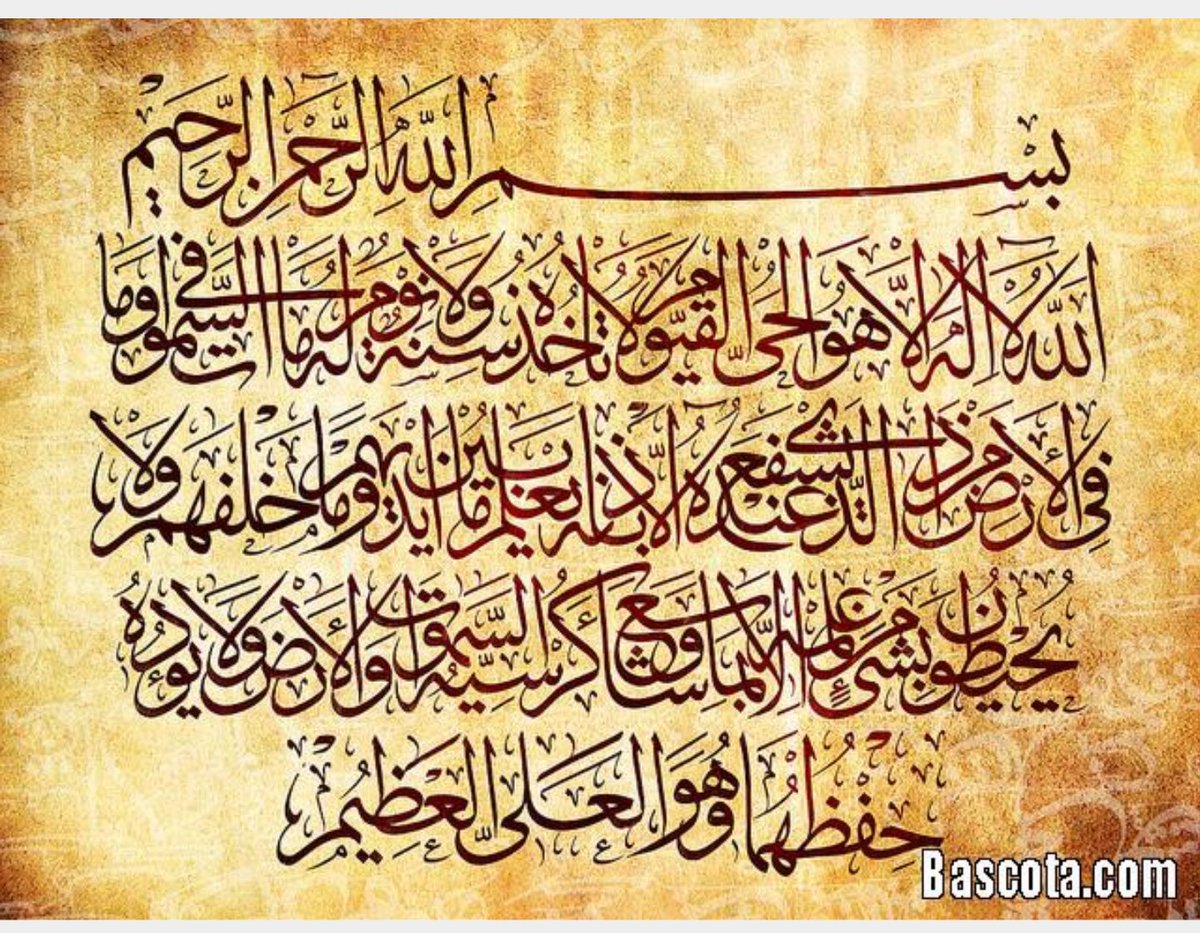 بِسْمِ اللَّهِ الرَّحْمٰنِ الرَّحِيمِ
اللَّهُ لَا إِلٰهَ إِلَّا هُوَ الْحَيُّ الْقَيُّومُ لَا تَأْخُذُهُ سِنَةٌ وَلَا نَوْمٌ لَهُ مَا فِي السَّمٰوَاتِ وَمَا
فِي الْأَرْضِ مَنْ ذَا الَّذِي يَشْفَعُ عِنْدَهُ إِلَّا بِإِذْنِهِ يَعْلَمُ مَا بَيْنَ أَيْدِيهِمْ وَمَا خَلْفَهُمْ وَلَا
يُحِيطُونَ بِشَيْءٍ مِنْ عِلْمِهِ إِلَّا بِمَا شَاءَ وَسِعَ كُرْسِيُّهُ السَّمٰوَاتِ وَالْأَرْضَ وَلَا يَئُودُهُ
حِفْظُهُمَا وَهُوَ الْعَلِيُّ الْعَظِيمُ
Bascota.com